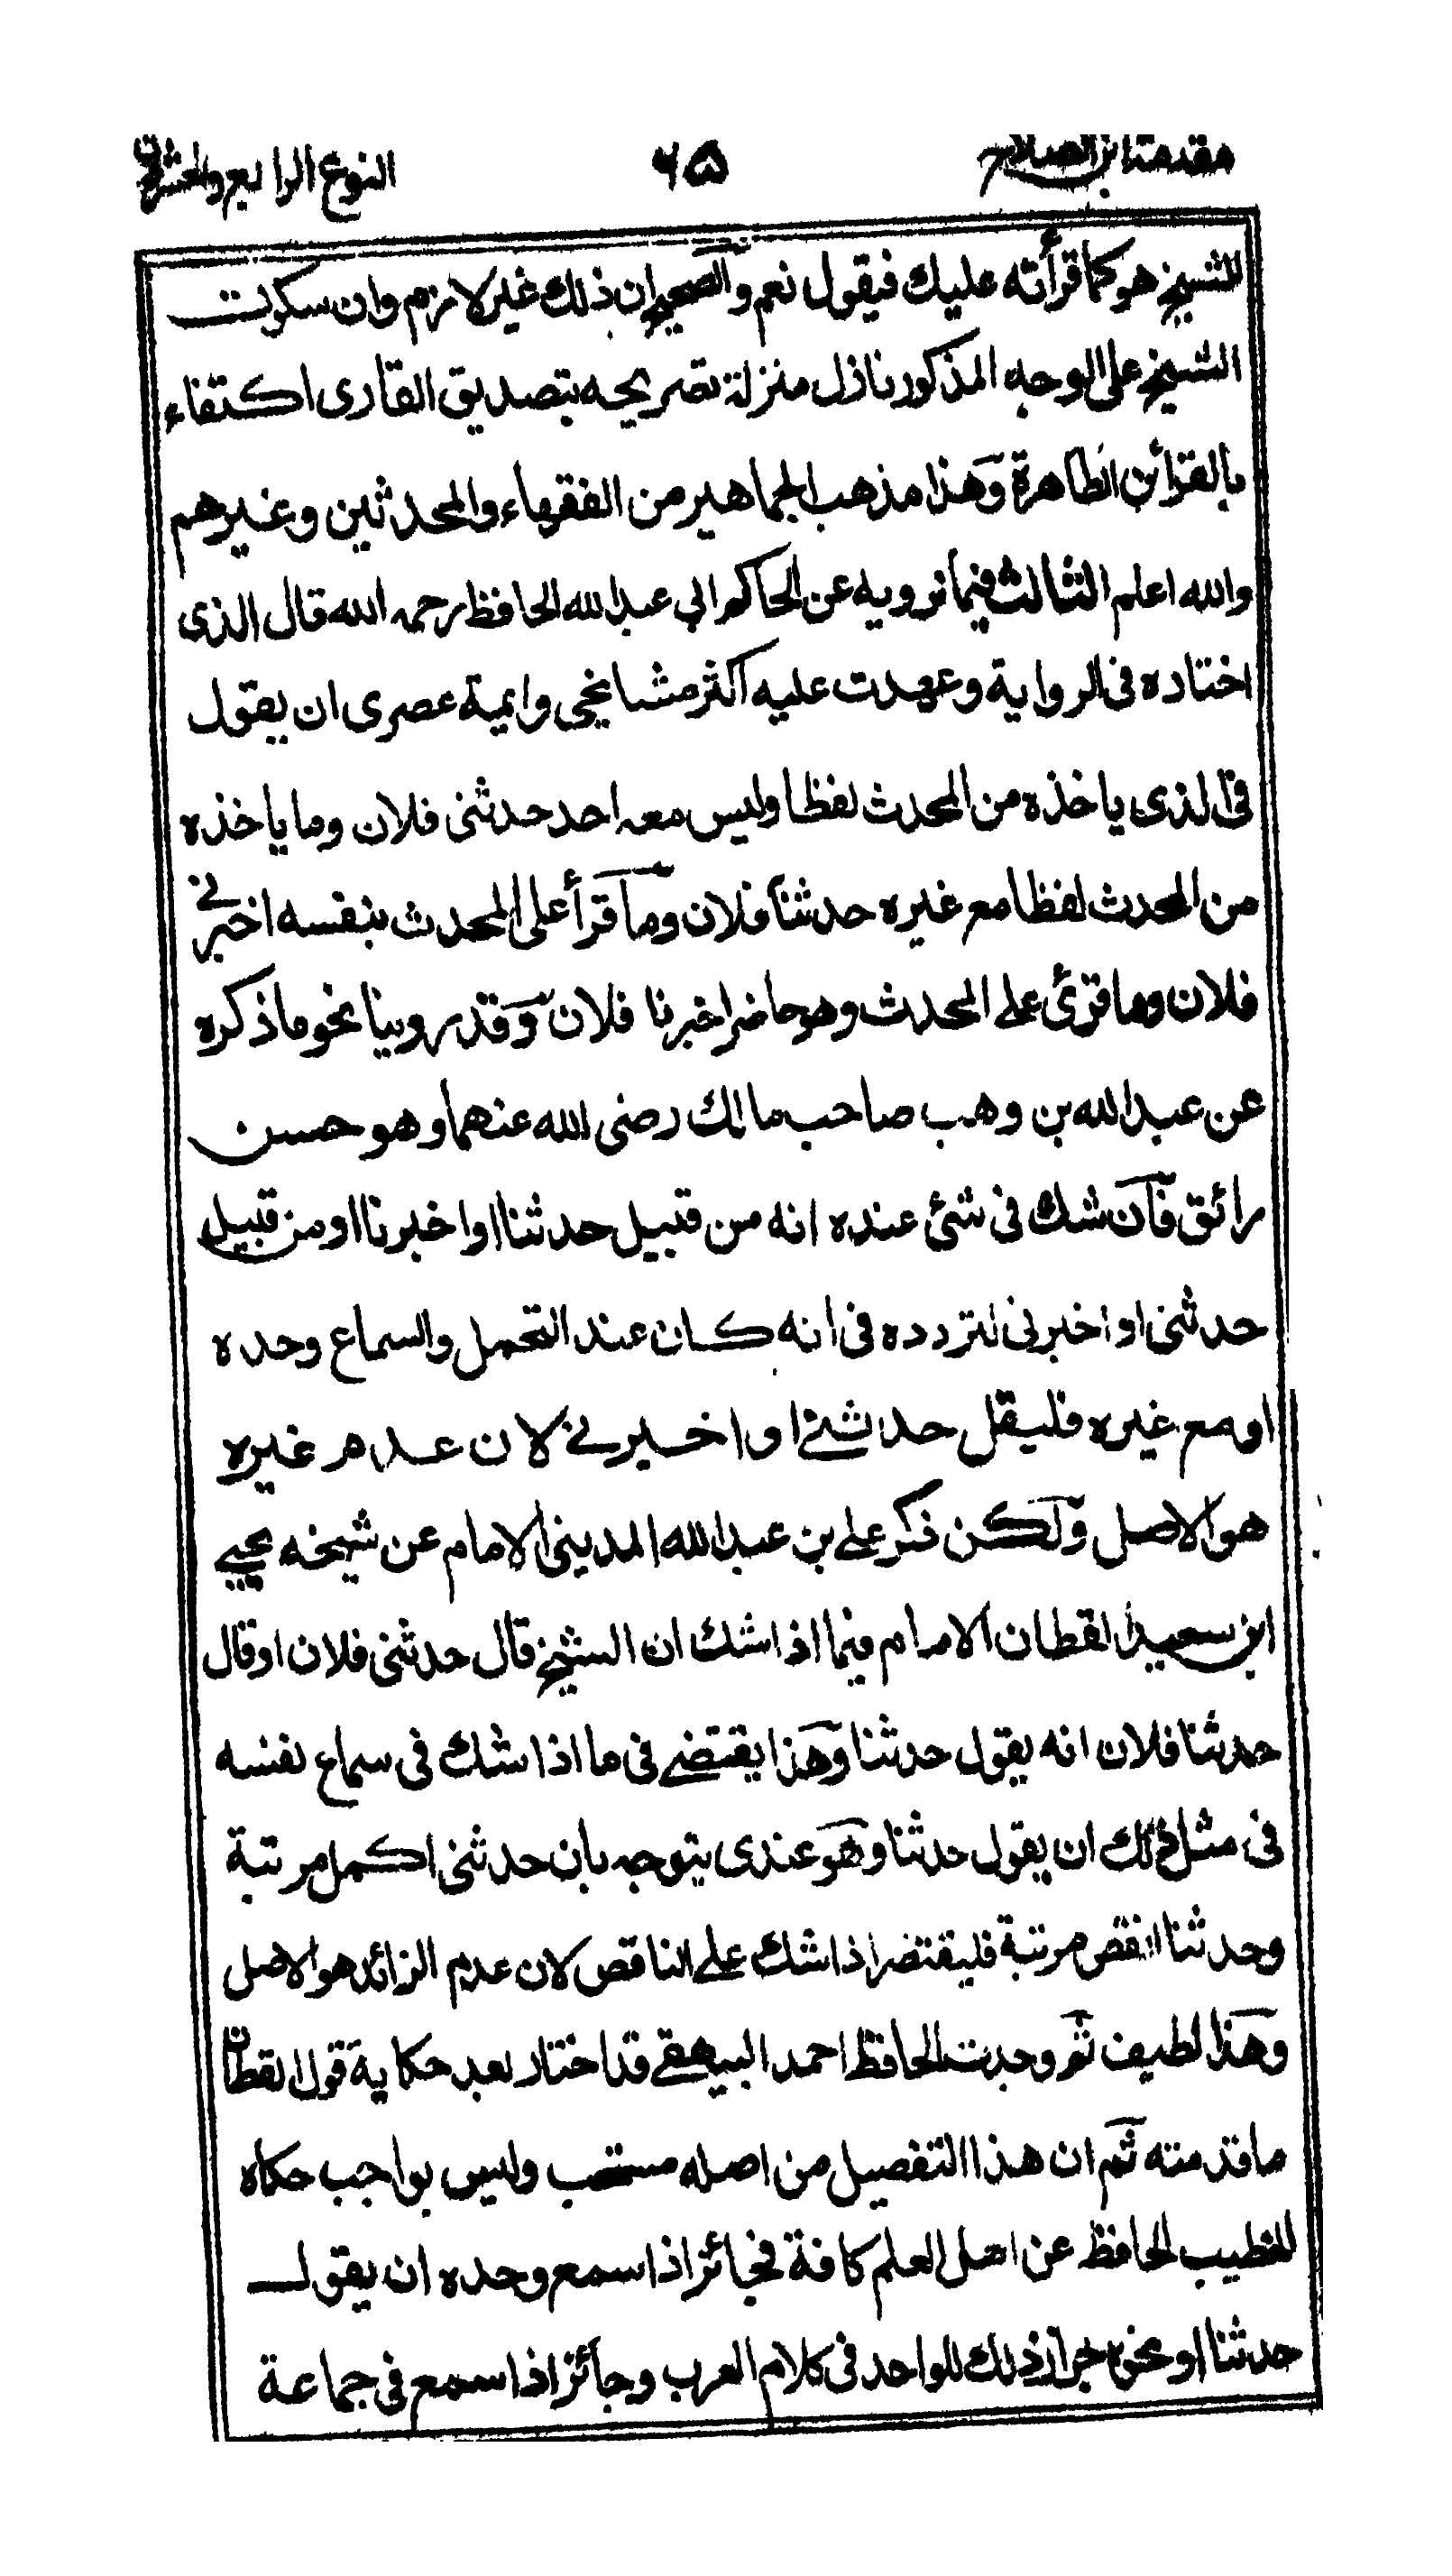 مقدمة ابن الصلاح ٦٥ النوع الرابع والعشرون
للشيخ هو كما قرأته عليك فيقول نعم والصحيح ان ذلك غير لازم وان سكوت
الشيخ على الوجه المذكور نازل منزلة تصريحه بتصديق القارى اكتفاء
بالقرائن الظاهرة وهذا مذهب الجماهير من الفقهاء والمحدثين وغيرهم
والله اعلم الثالث فيما نرويه عن الحاكم ابي عبد الله الحافظ رحمه الله قال الذى
اختاره فى الرواية وعهدت عليه اكثر مشايخي وايمية عصرى ان يقول
فى الذى ياخذه من المحدث لفظا وليس معه احد حدثنى فلان وما ياخذه
من المحدث لفظا مع غيره حدثنا فلان وما قرأ على المحدث بنفسه اخبرني
فلان وما قرئ على المحدث وهو حاضر اخبرنا فلان وقد روينا نحو ما ذكره
عن عبد الله بن وهب صاحب مالك رضى الله عنهما وهو حسن
رائق فان شك فى شئ عنده انه من قبيل حدثنا او اخبرنا او من قبيل
حدثنى او اخبرنى لتردده فى انه كان عند التحمل والسماع وحده
او مع غيره فليقل حدثني او اخبرني لان عدم غيره
هو الاصل ولكن ذكر علي بن عبد الله المدينى الامام عن شيخه يحيي
ابن سعيد القطان الامام فيما اذا شك ان الشيخ قال حدثنى فلان او قال
حدثنا فلان انه يقول حدثنا وهذا يقتضي فى ما اذا شك فى سماع نفسه
فى مثل ذلك ان يقول حدثنا وهو عندى يتوجه بان حدثنى اكمل مرتبة
وحدثنا انقص مرتبة فليقتصر اذا شك علي الناقص لان عدم الزائد هو الاصل
وهذا لطيف ثم وجدت الحافظ احمد البيهقي قد اختار بعد حكاية قول القطان
ما قدمته ثم ان هذا التفصيل من اصله مستحب وليس بواجب حكاه
الخطيب الحافظ عن اهل العلم كافة فجائز اذا سمع وحده ان يقول
حدثنا او نحوه لجواز ذلك للواحد فى كلام العرب وجائز اذا سمع فى جماعة